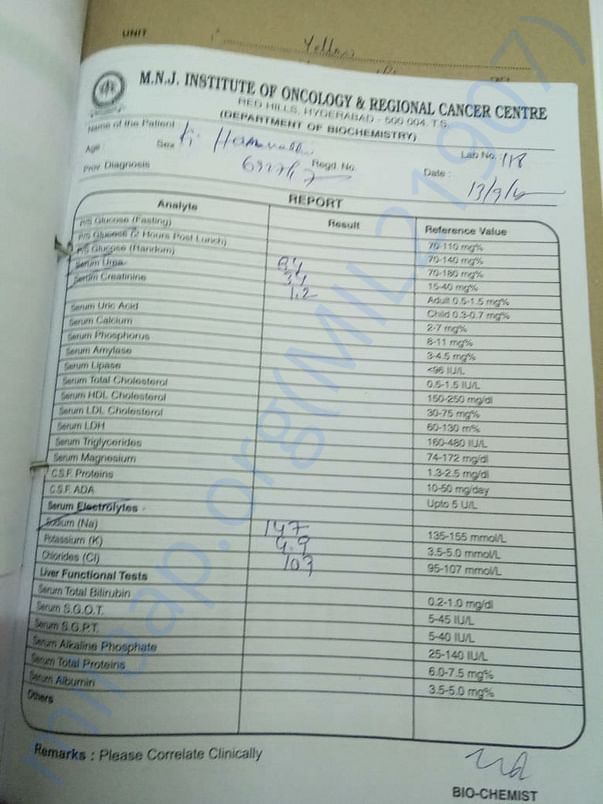 UNIT
Yellow
M.N.J. INSTITUTE OF ONCOLOGY & REGIONAL CANCER CENTRE
RED HILLS, HYDERABAD - 500 004. T.S.
(DEPARTMENT OF BIOCHEMISTRY)
Name of the Patient K.
Lab No. 118
Age Sex
Regd. No.
Date : 13/9/6
Prov Diagnosis
REPORT
Analyte Result Reference Value
P/S Glucose (Fasting) 70-110 mg%
P/S Glucose (2 Hours Post Lunch) 70-140 mg%
P/S Glucose (Random) 70-180 mg%
Serum Urea 34 15-40 mg%
Serum Creatinine 1.2 Adult 0.5-1.5 mg%
Child 0.3-0.7 mg%
Serum Uric Acid 2-7 mg%
Serum Calcium 8-11 mg%
Serum Phosphorus 3-4.5 mg%
Serum Amylase <96 IU/L
Serum Lipase 0.5-1.5 IU/L
Serum Total Cholesterol 150-250 mg/dl
Serum HDL Cholesterol 30-75 mg%
Serum LDL Cholesterol 60-130 m%
Serum LDH 160-480 IU/L
Serum Triglycerides 74-172 mg/dl
Serum Magnesium 1.3-2.5 mg/dl
C.S.F. Proteins 10-50 mg/day
C.S.F. ADA Upto 5 U/L
Serum Electrolytes
Sodium (Na) 147 135-155 mmol/L
Potassium (K) 4.9 3.5-5.0 mmol/L
Chlorides (Cl) 103 95-107 mmol/L
Liver Functional Tests
Serum Total Bilirubin 0.2-1.0 mg/dl
Serum S.G.O.T. 5-45 IU/L
Serum S.G.P.T. 5-40 IU/L
Serum Alkaline Phosphate 25-140 IU/L
Serum Total Proteins 6.0-7.5 mg%
Serum Albumin 3.5-5.0 mg%
Others
Remarks : Please Correlate Clinically
BIO-CHEMIST
milaap.org(MIL21907)